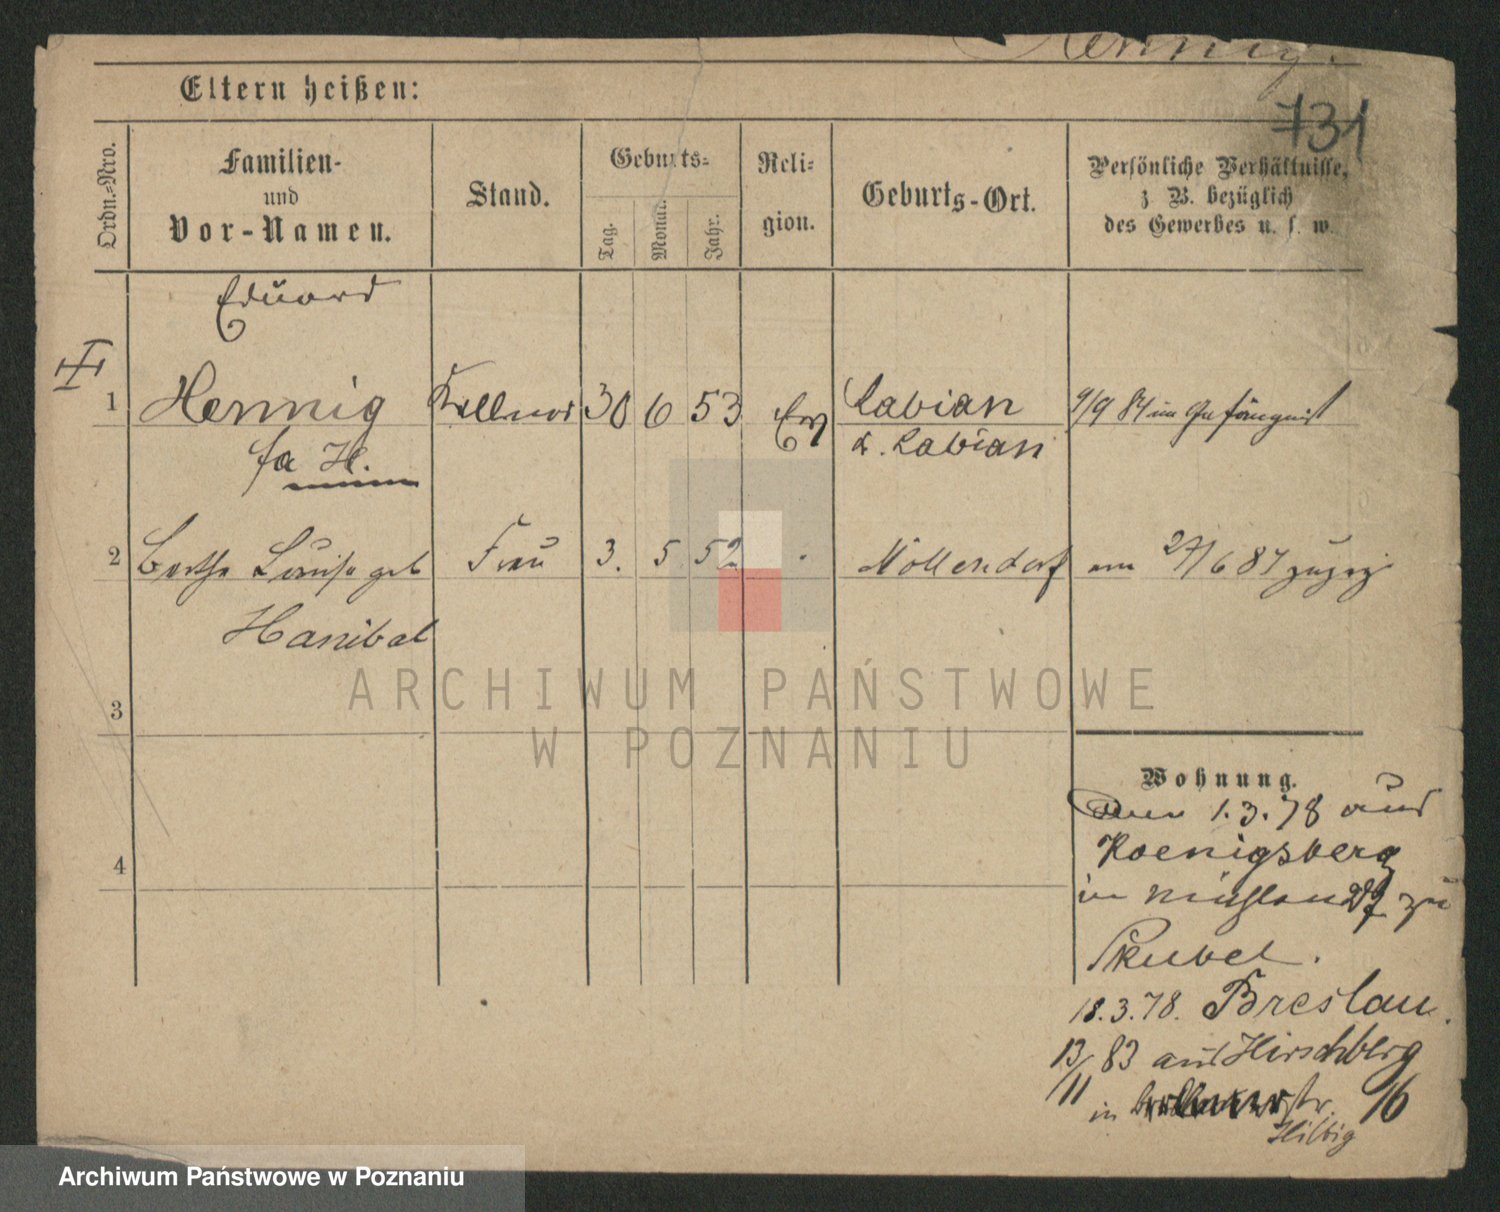 Hennig.
731
Eltern heißen:
Ordn.=Nro.
Familien-
und
Vor-Namen.
Stand.
Geburts=
Tag.
Monat.
Jahr.
Reli=
gion.
Geburts-Ort.
Persönliche Verhältnisse,
z B. bezüglich
des Gewerbes u. s. w.
Eduard
I
1 Hennig Kellner 30 6 53 Ev Labian 9/9 84 im Gefängniß
fa H. K. Labian
2 Bertha Louise geb Frau 3. 5 52 Möllendorf am 27/6 87 zuzg
Hanibal
3
4
Wohnung.
1.3.78 aus
Koenigsberg
in Mühlen zu
Skubel.
18.3.78. Breslau.
13/11 83 aus Hirschberg
in str. 16
Hilbig
ARCHIWUM PAŃSTWOWE
W POZNANIU
Archiwum Państwowe w Poznaniu